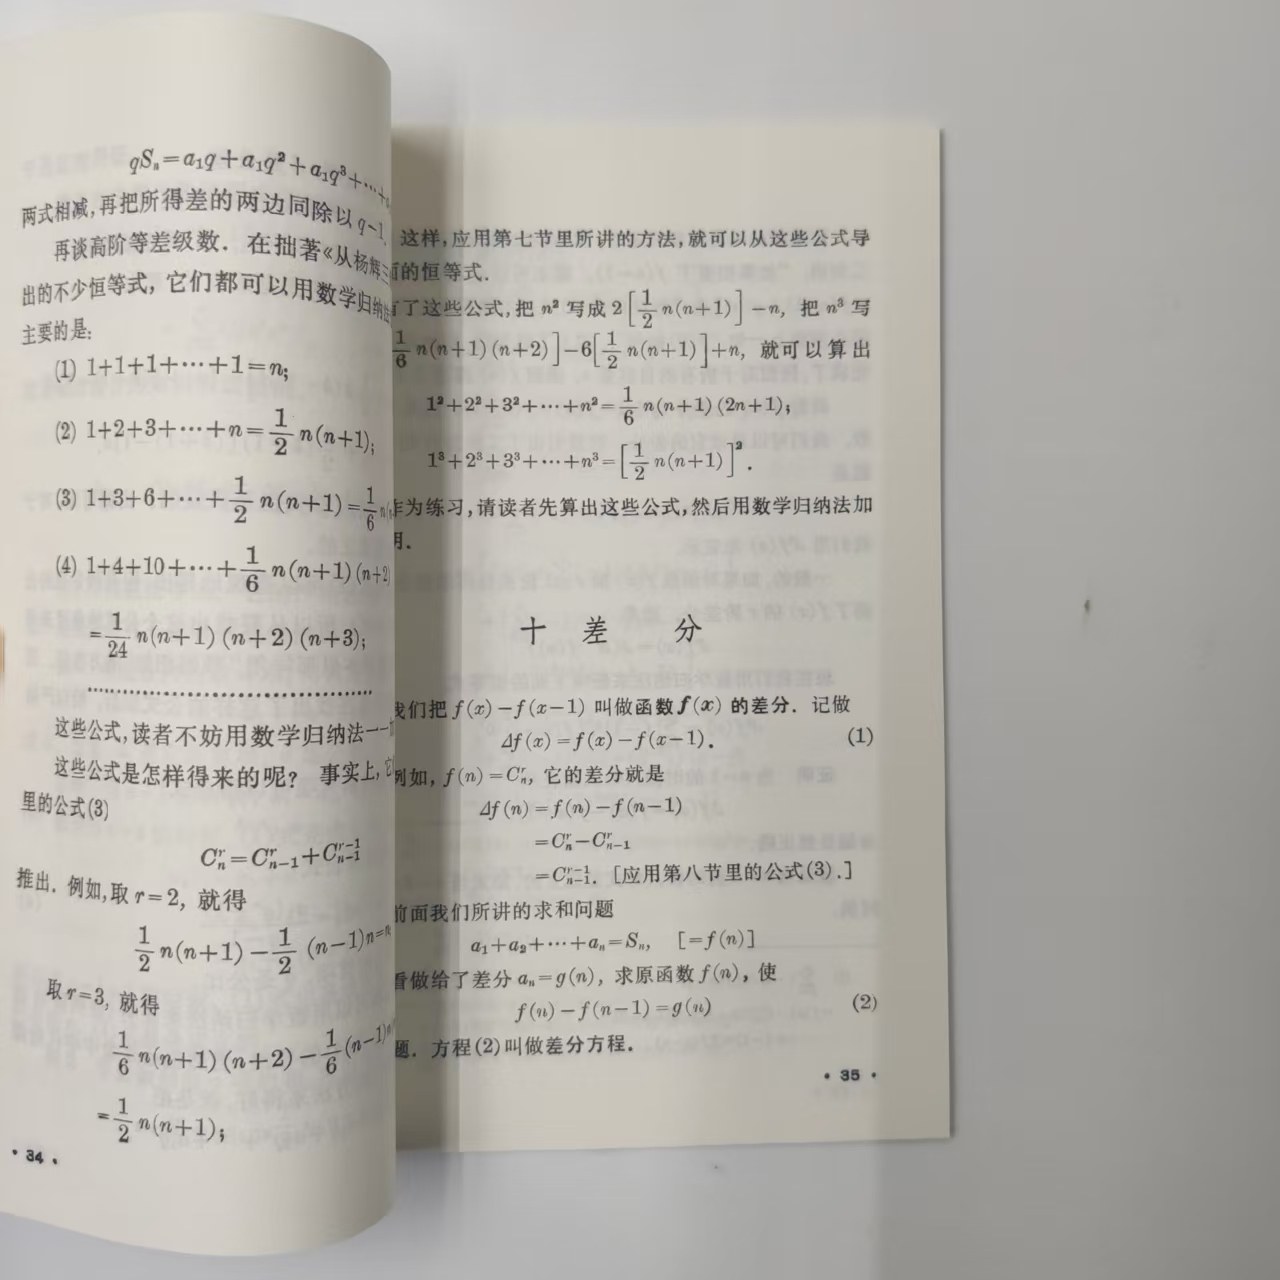 qSₙ=a₁q+a₁q²+a₁q³+⋯+
两式相减,再把所得差的两边同除以 q-1,
再谈高阶等差级数. 在拙著《从杨辉三
出的不少恒等式, 它们都可以用数学归纳法
主要的是:
(1) 1+1+1+⋯+1=n;
(2) 1+2+3+⋯+n=1/2 n(n+1);
(3) 1+3+6+⋯+1/2 n(n+1)=1/6 n(
(4) 1+4+10+⋯+1/6 n(n+1)(n+2)
=1/24 n(n+1)(n+2)(n+3);
………………………………
这些公式,读者不妨用数学归纳法一一
这些公式是怎样得来的呢? 事实上,它
里的公式(3)
Cₙʳ=Cₙ₋₁ʳ+Cₙ₋₁ʳ⁻¹
推出. 例如,取 r=2, 就得
1/2 n(n+1)-1/2 (n-1)n=n
取 r=3, 就得
1/6 n(n+1)(n+2)-1/6 (n-1)n
=1/2 n(n+1);
• 34 •
这样,应用第七节里所讲的方法,就可以从这些公式导
面的恒等式.
有了这些公式,把 n² 写成 2[1/2 n(n+1)]-n, 把 n³ 写
1/6 n(n+1)(n+2)]-6[1/2 n(n+1)]+n, 就可以算出
1²+2²+3²+⋯+n²=1/6 n(n+1)(2n+1);
1³+2³+3³+⋯+n³=[1/2 n(n+1)]².
作为练习,请读者先算出这些公式,然后用数学归纳法加
明.
十 差 分
我们把 f(x)-f(x-1) 叫做函数 f(x) 的差分. 记做
Δf(x)=f(x)-f(x-1). (1)
例如, f(n)=Cₙʳ, 它的差分就是
Δf(n)=f(n)-f(n-1)
=Cₙʳ-Cₙ₋₁ʳ
=Cₙ₋₁ʳ⁻¹. [应用第八节里的公式(3).]
前面我们所讲的求和问题
a₁+a₂+⋯+aₙ=Sₙ, [=f(n)]
看做给了差分 aₙ=g(n), 求原函数 f(n), 使
f(n)-f(n-1)=g(n) (2)
题. 方程(2)叫做差分方程.
• 35 •